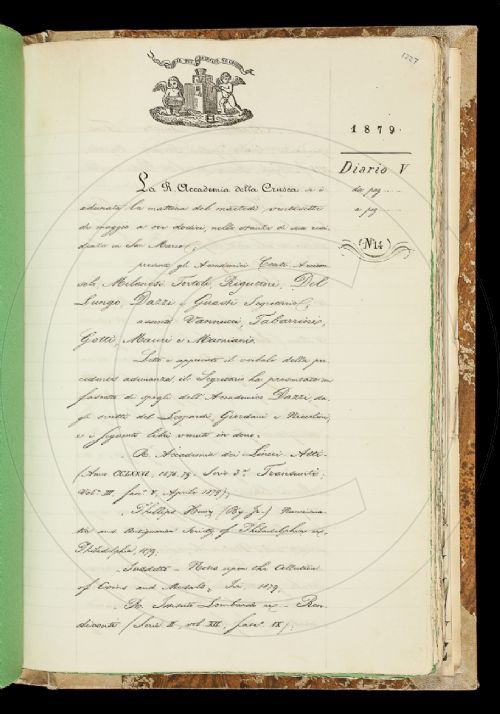 1227
1879
Diario V
da pag
a pg
N 14
La R. Accademia della Crusca si è
adunata la mattina del martedì ventisette
di maggio a ore dodici, nelle stanze di sua resi
denza in San Marco;
presenti gli Accademici Conti Arcicon
solo, Milanesi, Tortoli, Rigutini, Del
Lungo, Dazzi e Giusti Segretario;
assenti Vannucci, Tabarrini,
Gotti, Mauri e Mamiani.
Letto e approvato il verbale della pre
cedente adunanza, il Segretario ha presentato un
fascetto di spogli dell'Accademico Dazzi, da
gli scritti del Leopardi, Giordani e Niccolini,
e i seguenti libri venuti in dono:
R. Accademia dei Lincei. Atti
(Anno CCLXXVI, 1878-79. Serie 3a. Transunti;
Vol. III fasc. V, Aprile 1879);
Phillips Henry (By Jr.) Numisma
tic and Antiquarian Society of Philadelphia
Philadelphia, 1879.
Suddetto - Notes upon the Collection
of Coins and Medals, 1879;
R. Istituto Lombardo - Ren
diconti (Serie II, vol. XII, fasc. IX);